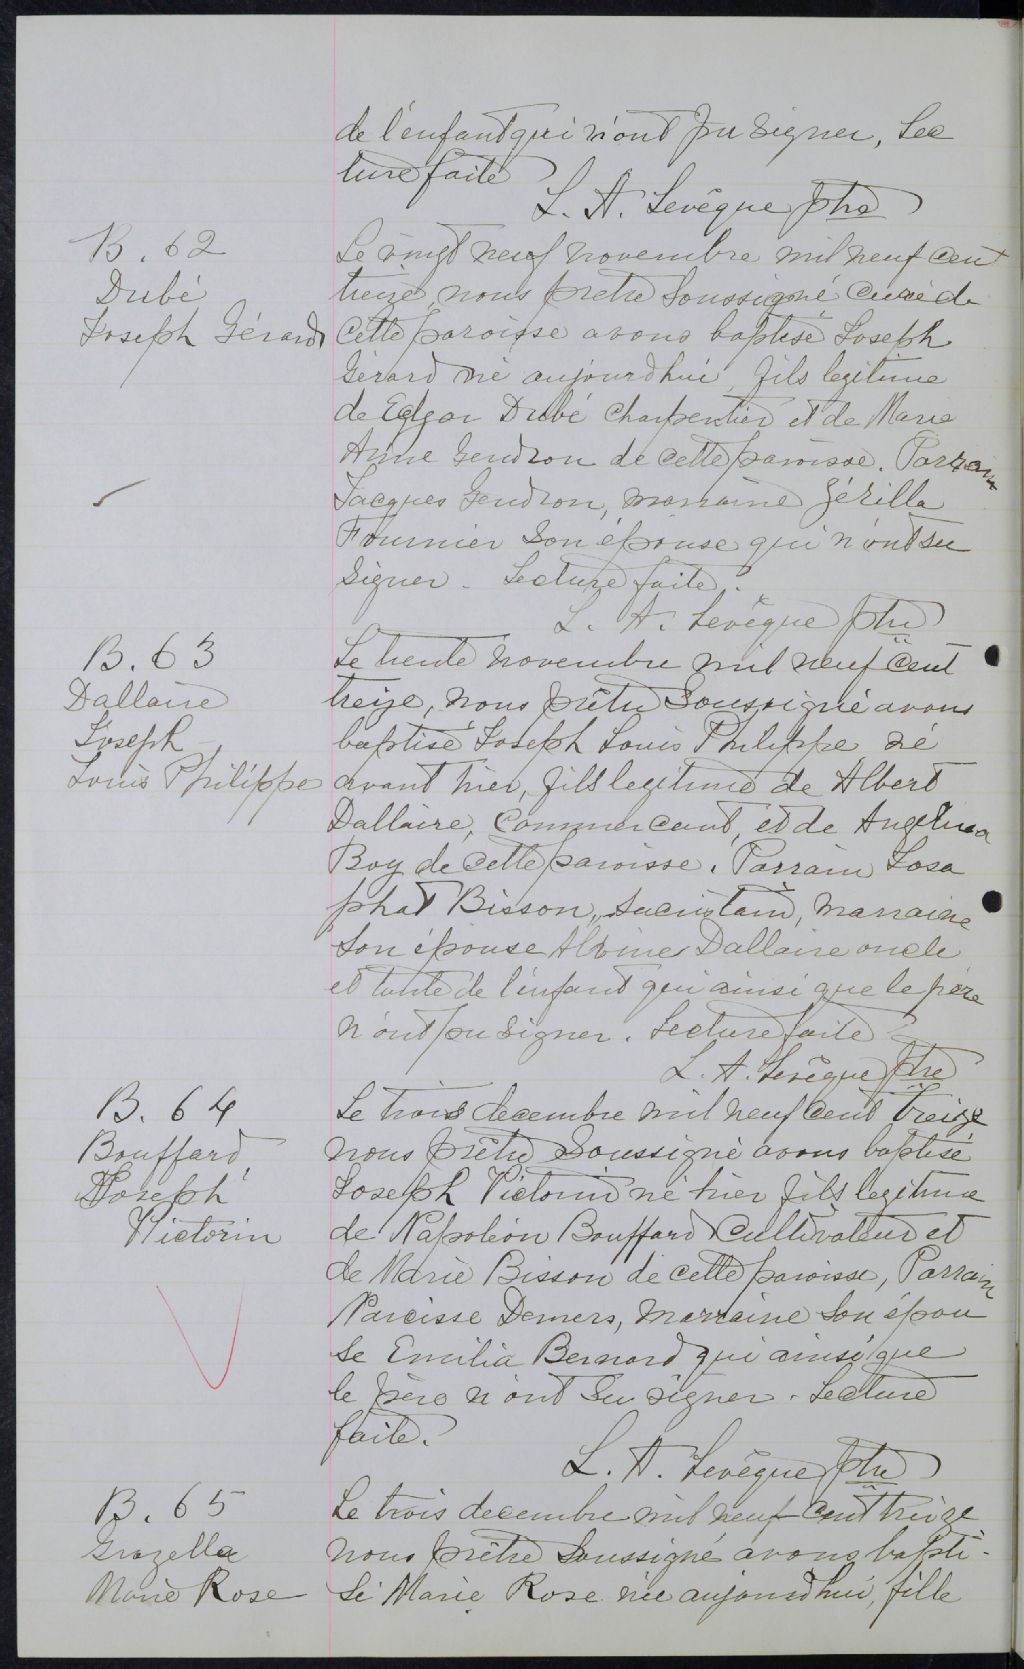 de l'enfant qui n'ont pu signer, Lec
ture faite
L. A. Levêque ptre
B. 62
Dubé
Joseph Gérard
Le vingt neuf novembre mil neuf cent
treize nous prêtre soussigné curé de
cette paroisse avons baptisé Joseph
Gérard né aujourdhui, fils legitime
de Edgar Dubé charpentier et de Marie
Anne Gendron de cette paroisse. Parrain
Jacques Gendron, marraine Zérilla
Fournier son épouse qui n'ont su
signer. Lecture faite.
L. A. Levêque ptre
B. 63
Dallaire
Joseph
Louis Philippe
Le trente novembre mil neuf cent
treize, nous prêtre soussigné avons
baptisé Joseph Louis Philippe né
avant hier, fils legitime de Albert
Dallaire, commercant, et de Angelina
Boy de cette paroisse. Parrain Josa
phat Bisson, sacristain, marraine
son épouse Dallaire oncle
et tante de l'enfant qui ainsi que le père
n'ont pu signer. Lecture faite
L. A. Levêque ptre
B. 64
Bouffard
Joseph
Victorin
Le trois decembre mil neuf cent treize
nous prêtre soussigné avons baptisé
Joseph Victorin né hier fils legitime
de Napoléon Bouffard cultivateur et
de Marie Bisson de cette paroisse, Parrain
Narcisse Demers, marraine son épou
se Emilia Bernard qui ainsi que
le père n'ont su signer. Lecture
faite.
L. A. Levêque ptre
B. 65
Grazella
Marie Rose
Le trois decembre mil neuf cent treize
nous prêtre soussigné avons bapti-
sé Marie Rose née aujourdhui, fille